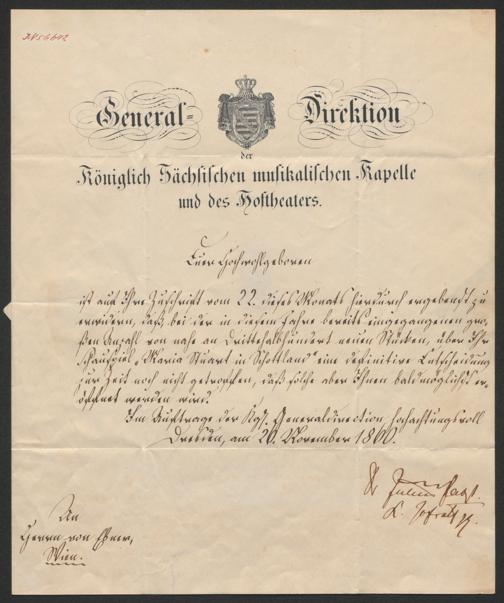 General-Direktion
der
Königlich Sächsischen musikalischen Kapelle
und des Hoftheaters.
Euer Hochwohlgeboren
ist auf Ihre Zuschrift vom 22. dieses Monats hierdurch ergebenst zu
erwidern, daß, bei der in diesem Jahre bereits eingegangenen gro-
ßen Anzahl von nahe an drittehalbhundert neuen Stücken, über Ihr
Schauspiel „Maria Stuart in Schottland“ eine definitive Entscheidung
zur Zeit noch nicht getroffen, daß solche aber Ihnen baldmöglichst er-
öffnet werden wird.
Im Auftrage der Kgl. Generaldirection hochachtungsvoll
Dresden, am 26. November 18
Dr Julius Pabst.
K. Hofrath
An
Herrn von Ebner,
Wien.